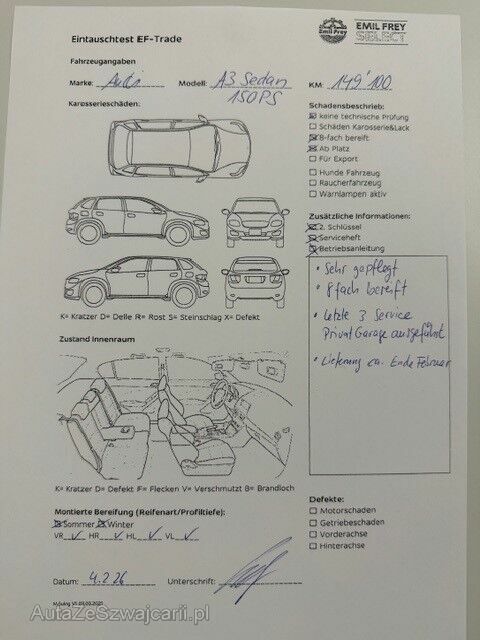 Eintauschtest EF-Trade
Emil Frey
EMIL FREY
SELECT
Fahrzeugangaben
Marke: Audi Modell: A3 Sedan KM: 149'100
150PS
Karosserieschäden:
Schadensbeschrieb:
keine technische Prüfung
Schäden Karosserie&Lack
8-fach bereift
Ab Platz
Für Export
Hunde Fahrzeug
Raucherfahrzeug
Warnlampen aktiv
Zusätzliche Informationen:
2. Schlüssel
Serviceheft
Betriebsanleitung
• Sehr gepflegt
• 8fach bereift
• Letzte 3 Service
Privat Garage ausgeführt
• Lieferung ca. Ende Februar
K= Kratzer D= Delle R= Rost S= Steinschlag X= Defekt
Zustand Innenraum
K= Kratzer D= Defekt F= Flecken V= Verschmutzt B= Brandloch
Montierte Bereifung (Reifenart/Profiltiefe):
Sommer Winter
VR ✓ HR ✓ HL ✓ VL ✓
Defekte:
Motorschaden
Getriebeschaden
Vorderachse
Hinterachse
Datum: 4.2.26 Unterschrift:
AutaZeSzwajcarii.pl